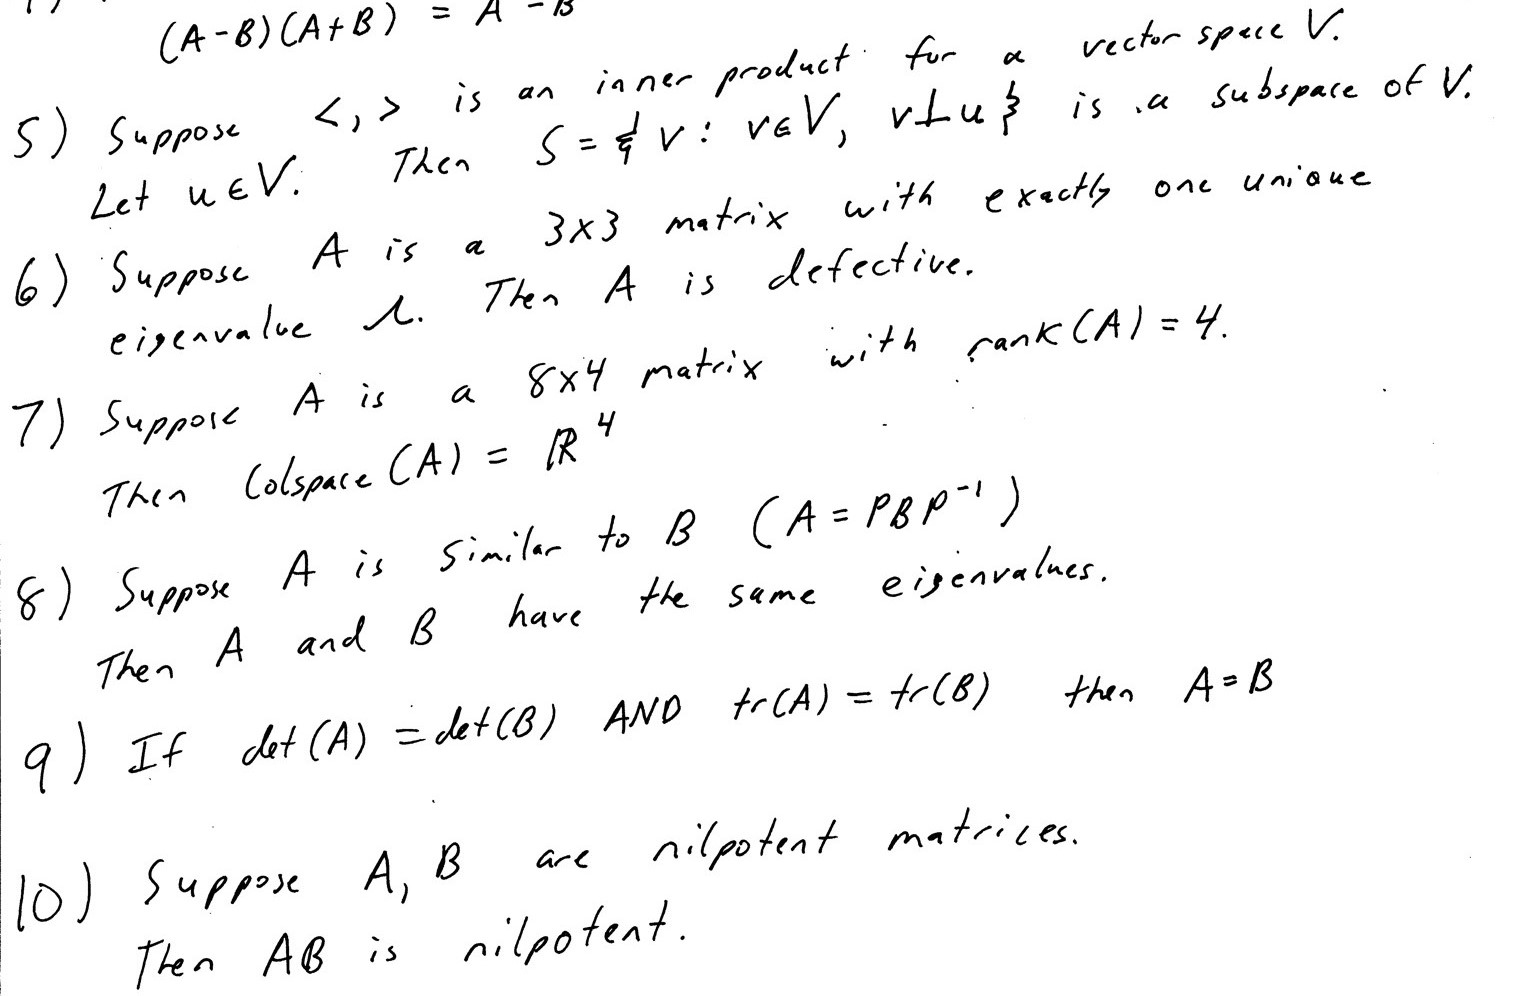 (A-B)(A+B) = A - B
5) Suppose <,> is an inner product for a vector space V.
Let u∈V. Then S = { v : v∈V, v⊥u } is a subspace of V.
6) Suppose A is a 3x3 matrix with exactly one unique
eigenvalue λ. Then A is defective.
7) Suppose A is a 8x4 matrix with rank(A) = 4.
Then Colspace(A) = ℝ⁴
8) Suppose A is similar to B (A = PBP⁻¹)
Then A and B have the same eigenvalues.
9) If det(A) = det(B) AND tr(A) = tr(B) then A = B
10) Suppose A, B are nilpotent matrices.
Then AB is nilpotent.